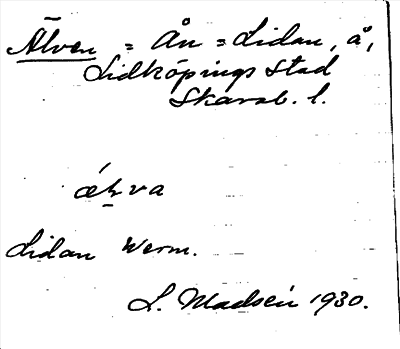 Älven = Ån = Lidan, å,
Lidköpings stad
Skarab. l.
Lidan Werm.
L. Madsén 1930.